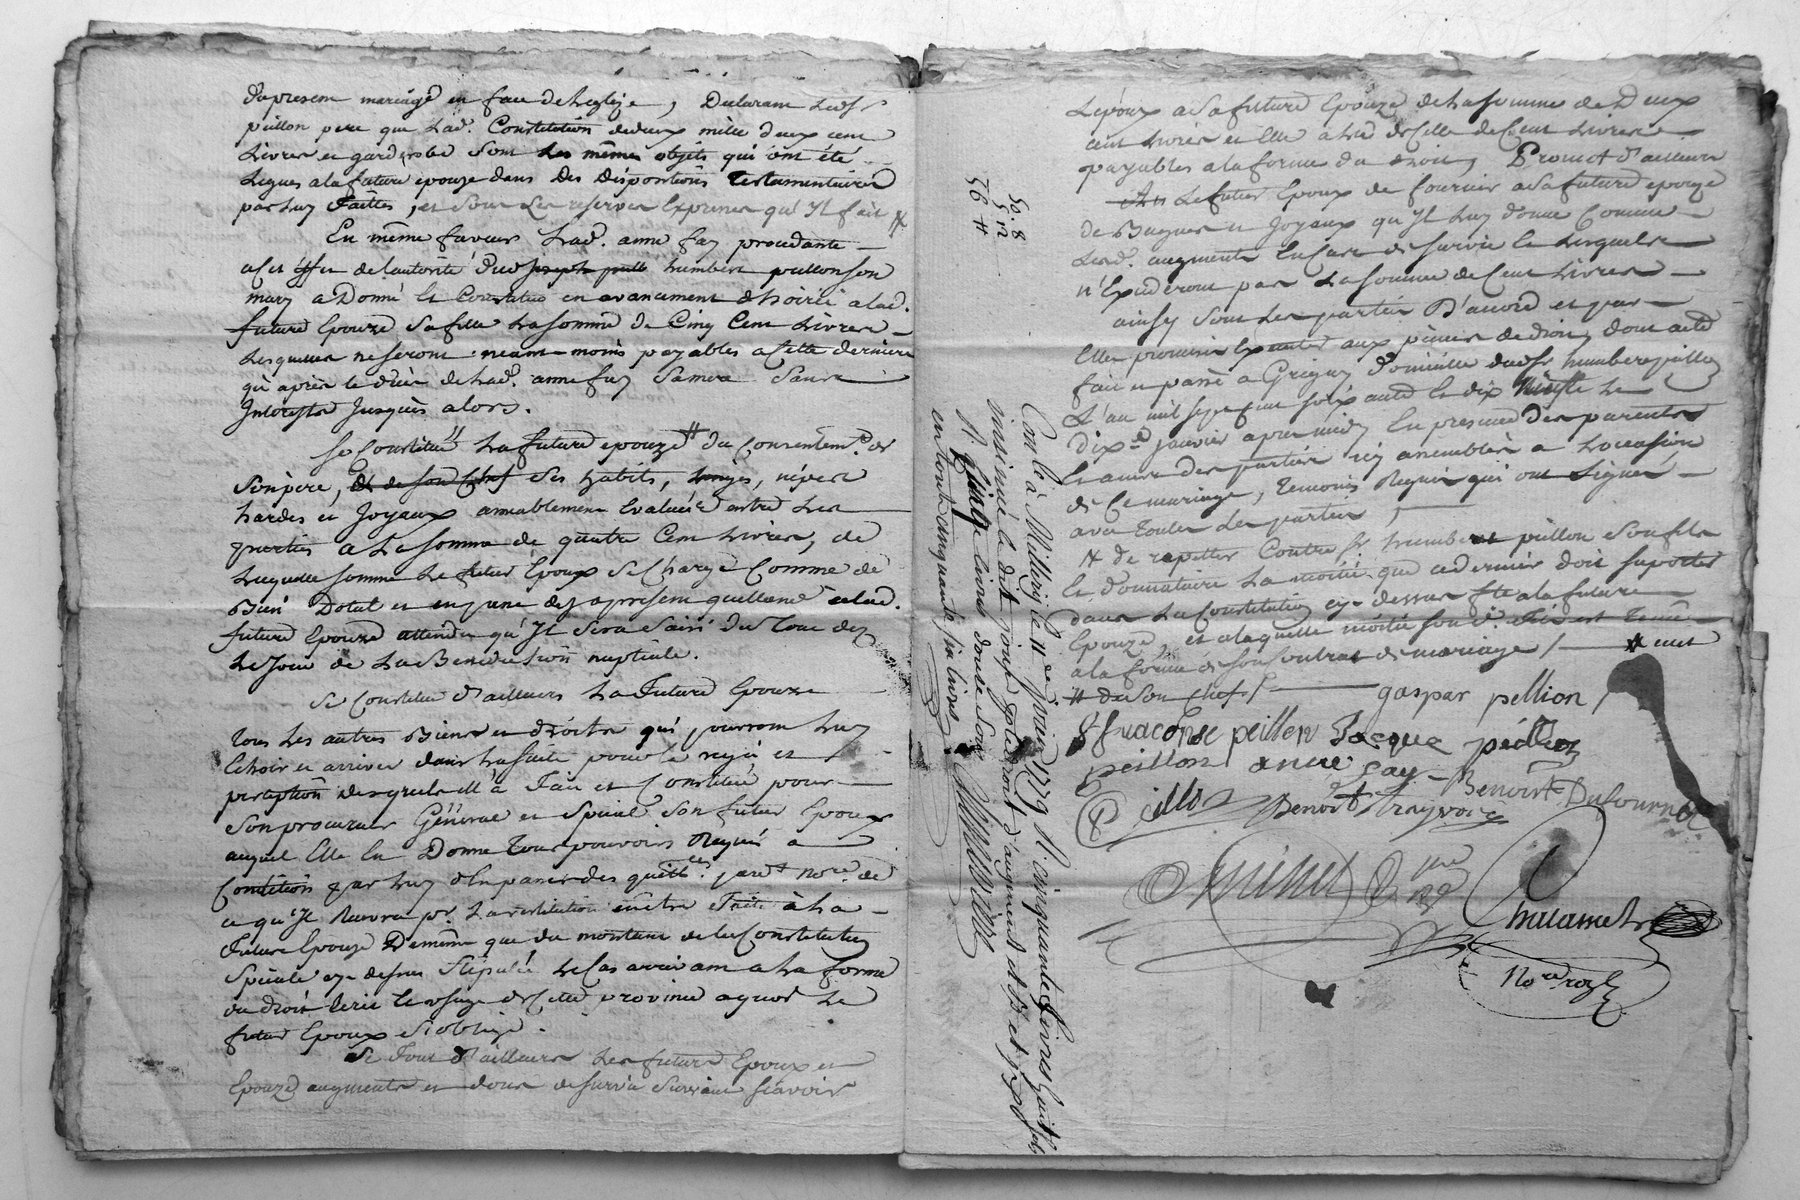 du present mariage en face de Leglize, Déclarant Ledsr
peillon pere que Lad. Constitution de deux mille deux cent
Livres et garderobe sont Les mêmes objets qui ont été
Legués a la future epouze dans Des Dispositions Testamentaires
par Luy Faittes, et sous Les reserves Expresses qu'Il fait #
En même faveur Lad. anne fay procedante
de l'autorité dud humbert peillon son
mary a Donné et Constitué en avancement d'hoirie a lad.
future Epouze sa fille La somme de Cinq Cent Livres
Lesquelles ne seront neant-moins payables a Cette derniere
qu'après le décès de Lad. anne fay Sa mere Sans
Interests Jusques alors.
Se Constitue La future epouze # du Consentemt. de
Son pere, et de son Chef Ses habits, Linges, nipes
hardes et Joyaux amiablement Evalués entre Les
parties a La somme de quatre Cent Livres, de
Laquelle somme Le futur Epoux Se Charge Comme de
Bien Dotal et en passe des a present quittance a lad.
future Epouze attendu qu'Il sera Saisi du Tout dez
Le Jour de La Benediction nuptiale.
Se Constitue d'ailleurs La Future Epouze
Tous Les autres Biens et Droits qui pourront Luy
Echoir et arriver dans La suitte pour le reçu et
perception desquels Ell'a Fait et Constitué pour
Son procureur Géneral et Spécial Son futur Epoux
auquel Elle En Donne Tous pouvoirs Requis a
Condition par Luy d'En passer des quittces. pardt. nore. de
ce qu'Il Recevra pr. La restitution En être Faite à La
Future Epouze De même que du montant de la Constitution
Spéciale cy-dessus Stipulée Le Cas arrivant a La forme
du droit Ecrit et usage de Cette province a quoy Le
futur Epoux s'oblige.
Se Font d'ailleurs Les futurs Epoux et
Epouze augments et dons de survie suivant sçavoir
L'epoux a Sa future Epouze de La somme de Deux
cent Livres et Elle a Luy de Celle de Cent Livres
payables a la forme du droit, Promet d'ailleurs
Le futur Epoux de fournir a Sa future epouze
de Bagues et Joyaux qu'Il Luy donne Comme
Led. augment En Cas de survie Et Lesquels
n'Excederont pas La somme de Cent Livres
ainsy sont Les parties D'accord et par
Elles promis Executer aux peines de droit, dont acte
fait et passé a Grigny domicille dudsr humbert peillon
L'an mil sept cent soixante et dix neuf Le
dixe. janvier apres midy En presence des parents
Et amis des parties icy assemblés a Loccasion
de Ce mariage, Temoins Requis qui ont Signés
avec toutes Les parties,
# de repetter Contre sr. humbert peillon son fils
Et donnataire La moitié que ce dernier doit suporter
dans La Constitution cy-dessus fte a la future
Epouze, et a laquelle moitié sond. fils est Tenu
a la forme de son Contrat de mariage /
# de Son Chef /
gaspar pellion
peillon Jacque peillon
peillon anne fay Benoist Dufournel
peillon Benoit
Chalamel
Nore royl
50. 8
5. 12
56 #
Conllé à Millery le 11e. Janvier 1779 R. cinquante livres huit sols
insinué le dit jour par droit d'augment et B. et J.
R. cinq livres douze sols
en tout cinquante six livres